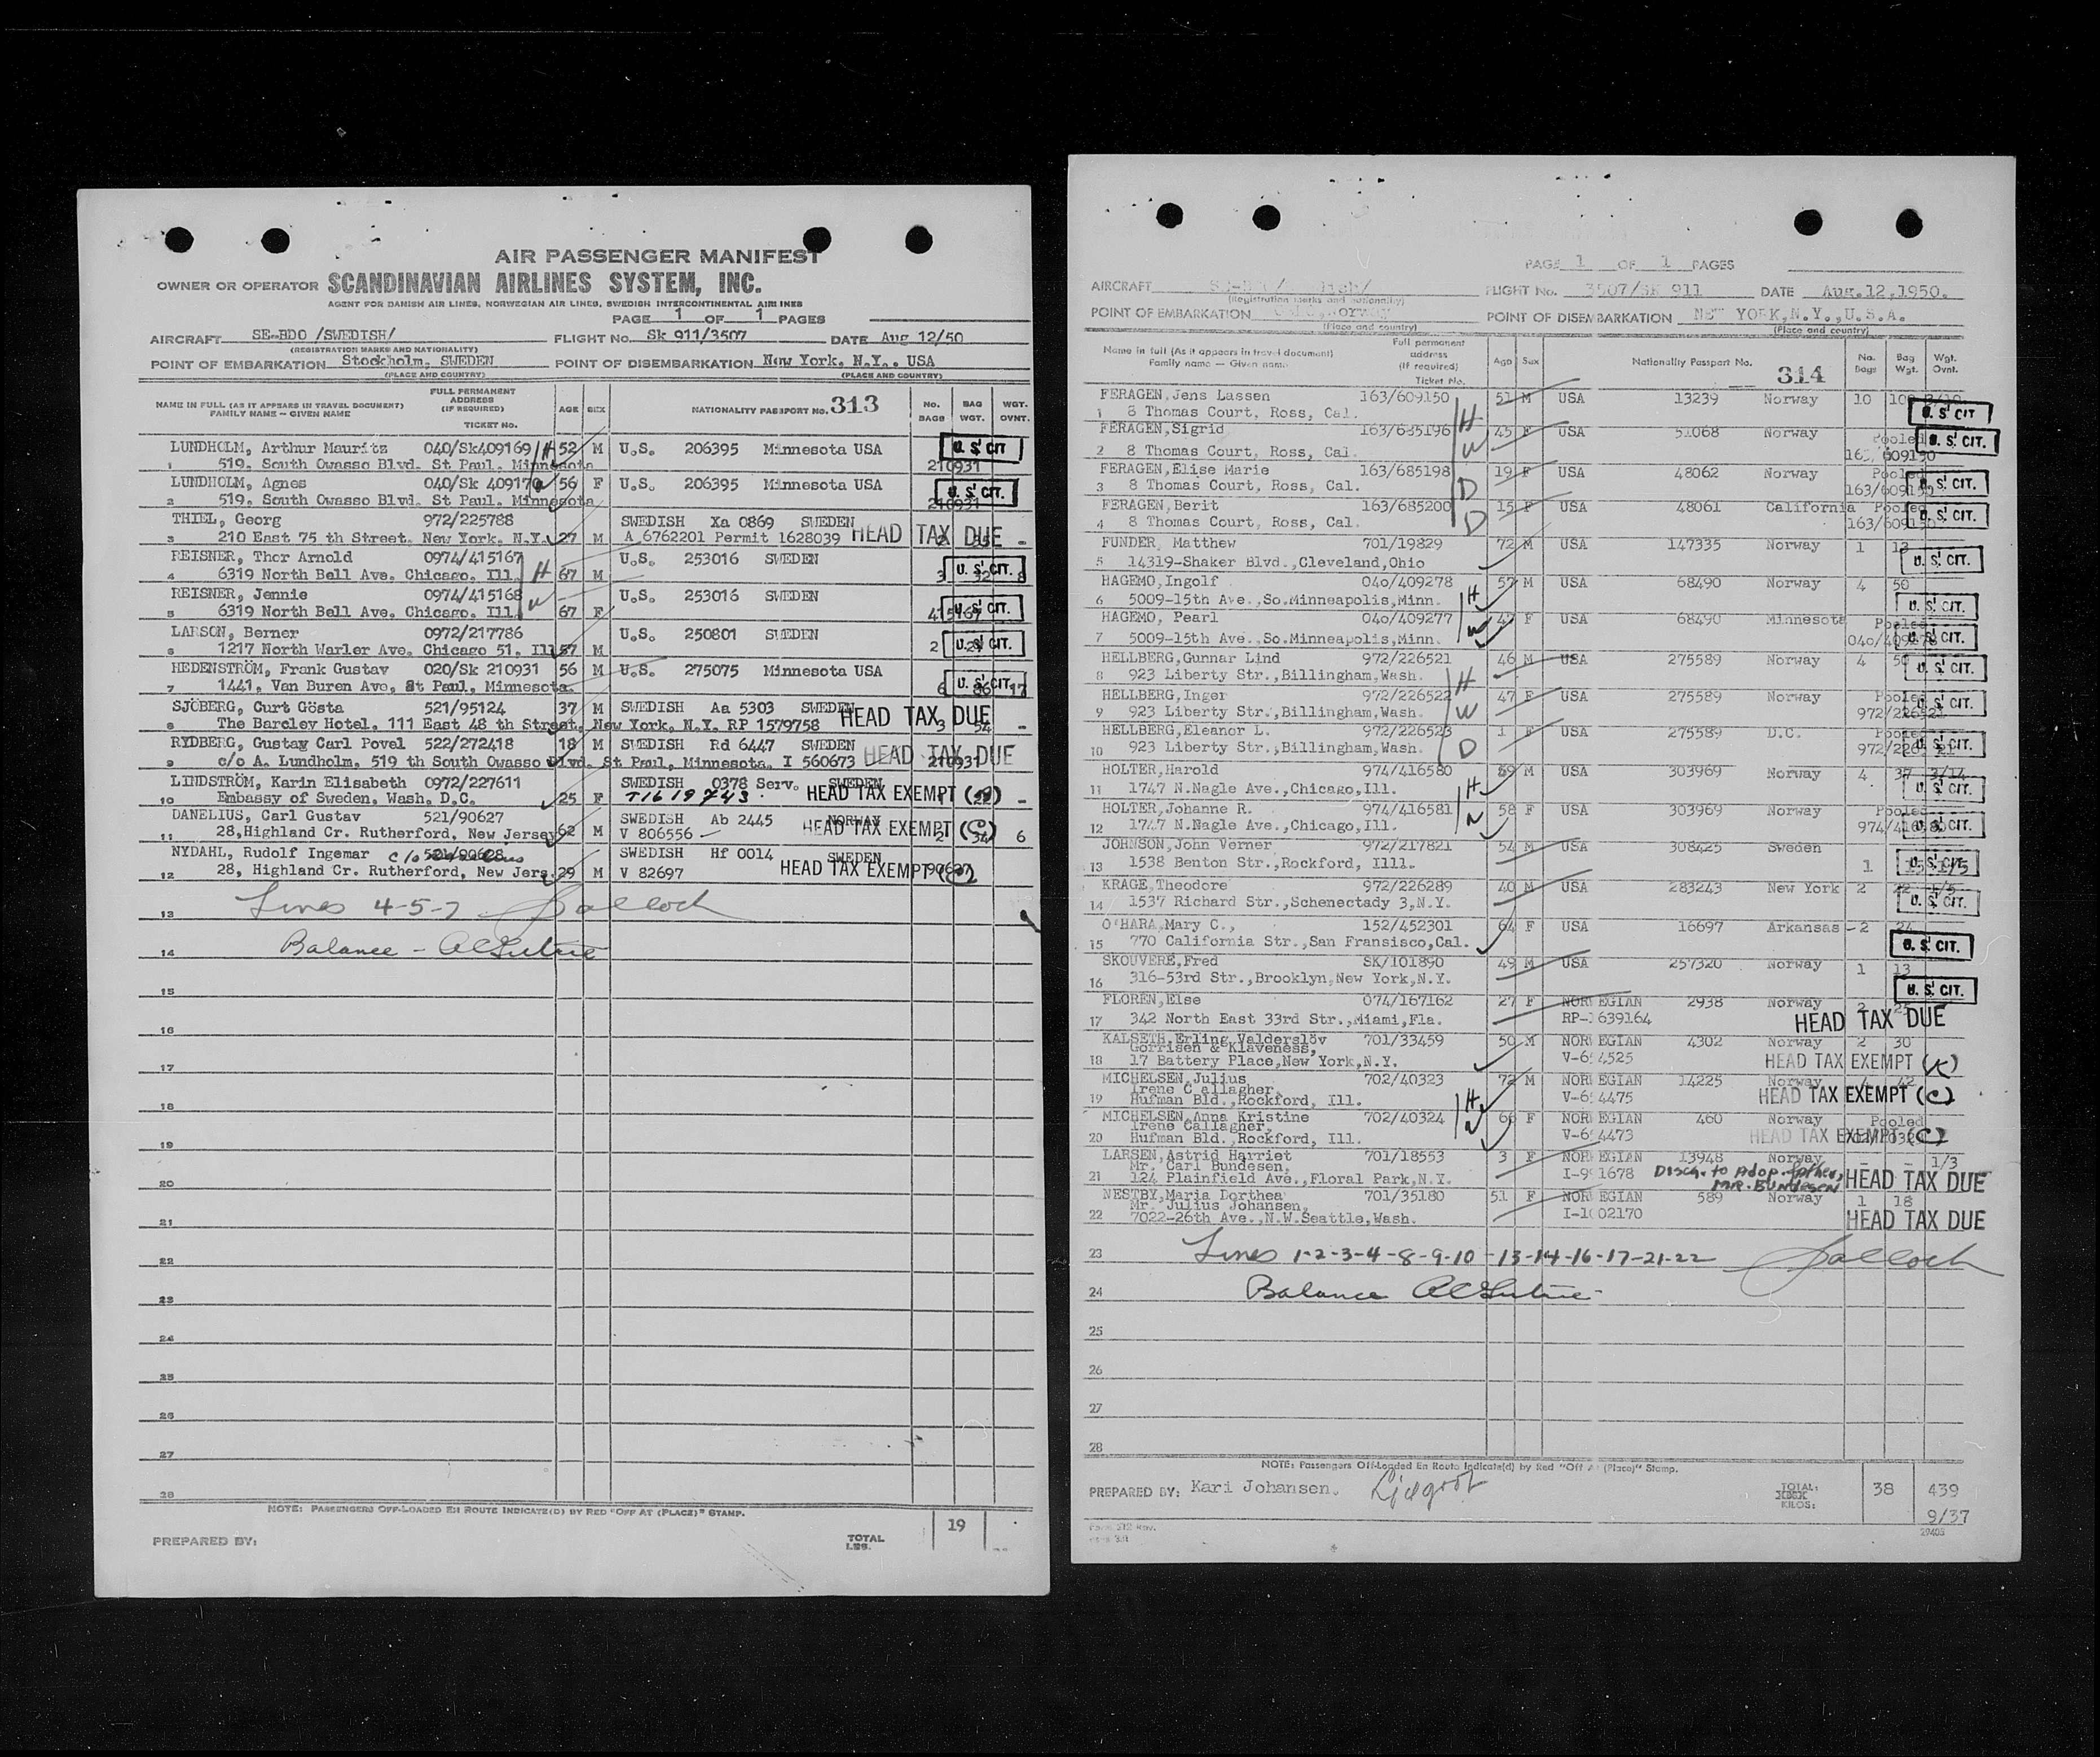 AIR PASSENGER MANIFEST
OWNER OR OPERATOR SCANDINAVIAN AIRLINES SYSTEM, INC.
AGENT FOR DANISH AIR LINES, NORWEGIAN AIR LINES, SWEDISH INTERCONTINENTAL AIR LINES
PAGE 1 OF 1 PAGES
AIRCRAFT SE-BDO /SWEDISH/ FLIGHT No. Sk 911/3507 DATE Aug 12/50
(REGISTRATION MARKS AND NATIONALITY)
POINT OF EMBARKATION Stockholm, SWEDEN POINT OF DISEMBARKATION New York, N.Y., USA
(PLACE AND COUNTRY) (PLACE AND COUNTRY)
NAME IN FULL (AS IT APPEARS IN TRAVEL DOCUMENT) FAMILY NAME — GIVEN NAME FULL PERMANENT ADDRESS (IF REQUIRED) TICKET No. AGE SEX NATIONALITY PASSPORT No. 313 No. BAGS BAG WGT. WGT. OVNT.
LUNDHOLM, Arthur Mauritz 040/Sk409169 H 52 M U.S. 206395 Minnesota USA U.S. CIT
1 519. South Owasso Blvd. St Paul. Minnesota 210931
LUNDHOLM, Agnes 040/Sk 409170 56 F U.S. 206395 Minnesota USA U.S. CIT.
2 519. South Owasso Blvd. St Paul. Minnesota 210931
THIEL, Georg 972/225788 SWEDISH Xa 0869 SWEDEN
3 210 East 75 th Street. New York. N.Y. 27 M A 6762201 Permit 1628039 HEAD TAX DUE -
REISNER, Thor Arnold 0974/415167 U.S. 253016 SWEDEN
4 6319 North Bell Ave. Chicago. Ill. H 67 M 3 U.S. CIT. 8
REISNER, Jennie 0974/415168 U.S. 253016 SWEDEN
5 6319 North Bell Ave. Chicago. Ill. W 67 F 415167 U.S. CIT.
LARSON, Berner 0972/217786 U.S. 250801 SWEDEN
6 1217 North Warler Ave. Chicago 51. Ill 57 M 2 U.S. CIT.
HEDENSTRÖM, Frank Gustav 020/Sk 210931 56 M U.S. 275075 Minnesota USA
7 1441. Van Buren Ave. St Paul, Minnesota. 6 U.S. CIT. 17
SJÖBERG, Curt Gösta 521/95124 37 M SWEDISH Aa 5303 SWEDEN
8 The Barcley Hotel. 111 East 48 th Street. New York. N.Y. RP 1579758 HEAD TAX DUE 3 54 -
RYDBERG, Gustav Carl Povel 522/272418 18 M SWEDISH Rd 6447 SWEDEN
9 c/o A. Lundholm. 519 th South Owasso Blvd. St Paul, Minnesota. I 560673 HEAD TAX DUE 210931
LINDSTRÖM, Karin Elisabeth 0972/227611 SWEDISH 0378 Serv. SWEDEN
10 Embassy of Sweden. Wash. D.C. 25 F T1619743. HEAD TAX EXEMPT -
DANELIUS, Carl Gustav 521/90627 SWEDISH Ab 2445 NORWAY
11 28,Highland Cr. Rutherford, New Jersey 62 M V 806556 HEAD TAX EXEMPT (C) 2 34 6
NYDAHL, Rudolf Ingemar c/o 521/90628 SWEDISH Hf 0014 SWEDEN
12 28, Highland Cr. Rutherford, New Jers. 29 M V 82697 HEAD TAX EXEMPT 90627
13 Lines 4-5-7
14 Balance -
15
16
17
18
19
20
21
22
23
24
25
26
27
28
NOTE: PASSENGERS OFF-LOADED EN ROUTE INDICATE(D) BY RED "OFF AT (PLACE)" STAMP.
PREPARED BY: TOTAL LBS. 19
PAGE 1 OF 1 PAGES
AIRCRAFT FLIGHT No. 3507/SK 911 DATE Aug.12,1950.
(Registration marks and nationality)
POINT OF EMBARKATION Oslo,Norway POINT OF DISEMBARKATION NEW YORK,N.Y.,U.S.A.
(Place and country) (Place and country)
Name in full (As it appears in travel document) Family name — Given name Full permanent address (If required) Ticket No. Age Sex Nationality Passport No. 314 No. Bags Bag Wgt. Wgt. Ovnt.
FERAGEN, Jens Lassen 163/609150 51 M USA 13239 Norway 10
1 8 Thomas Court, Ross, Cal. H U.S. CIT
FERAGEN, Sigrid 163/685196 45 F USA 51068 Norway Pooled U.S. CIT.
2 8 Thomas Court, Ross, Cal. W 163/609150
FERAGEN, Elise Marie 163/685198 19 F USA 48062 Norway Pooled U.S. CIT.
3 8 Thomas Court, Ross, Cal. D 163/609150
FERAGEN, Berit 163/685200 15 F USA 48061 California Pooled U.S. CIT.
4 8 Thomas Court, Ross, Cal. D 163/609150
FUNDER, Matthew 701/19829 72 M USA 147335 Norway 1 13
5 14319-Shaker Blvd.,Cleveland,Ohio U.S. CIT.
HAGEMO, Ingolf 040/409278 57 M USA 68490 Norway 4 50
6 5009-15th Ave.,So.Minneapolis,Minn. H U.S. CIT.
HAGEMO, Pearl 040/409277 47 F USA 68490 Minnesota Pooled
7 5009-15th Ave.,So.Minneapolis,Minn. W 040/409278 U.S. CIT.
HELLBERG,Gunnar Lind 972/226521 46 M USA 275589 Norway 4 50
8 923 Liberty Str.,Billingham,Wash. H U.S. CIT.
HELLBERG,Inger 972/226522 47 F USA 275589 Norway Pooled
9 923 Liberty Str.,Billingham,Wash. W 972/226521 U.S. CIT.
HELLBERG,Eleanor L. 972/226523 1 F USA 275589 D.C. Pooled
10 923 Liberty Str.,Billingham,Wash. D 972/226521 U.S. CIT.
HOLTER,Harold 974/416580 59 M USA 303969 Norway 4 37 3/14
11 1747 N.Nagle Ave.,Chicago,Ill. H U.S. CIT.
HOLTER,Johanne R. 974/416581 58 F USA 303969 Norway Pooled
12 1747 N.Nagle Ave.,Chicago,Ill. W 974/416580 U.S. CIT.
JOHNSON,John Verner 972/217821 54 M USA 308425 Sweden
13 1538 Benton Str.,Rockford, Illl. 1 U.S. CIT.
KRAGE,Theodore 972/226289 40 M USA 283243 New York 2 22 1/5
14 1537 Richard Str.,Schenectady 3,N.Y. U.S. CIT.
O'HARA,Mary C., 152/452301 64 F USA 16697 Arkansas -2 24
15 770 California Str.,San Fransisco,Cal. U.S. CIT.
SKOUVERE,Fred SK/101890 49 M USA 257320 Norway 1 13
16 316-53rd Str.,Brooklyn,New York,N.Y. U.S. CIT.
FLOREN,Else 074/167162 27 F NORWEGIAN 2938 Norway 2 25
17 342 North East 33rd Str.,Miami,Fla. RP-1639164 HEAD TAX DUE
KALSETH,Erling Valderslöv 701/33459 50 M NORWEGIAN 4302 Norway 2 30
Gorrisen & Klaveness,
18 17 Battery Place,New York,N.Y. V-654525 HEAD TAX EXEMPT (K)
MICHELSEN,Julius 702/40323 72 M NORWEGIAN 14225 Norway 4 42
Irene Callagher,
19 Hufman Bld.,Rockford, Ill. H V-654475 HEAD TAX EXEMPT (C)
MICHELSEN,Anna Kristine 702/40324 66 F NORWEGIAN 460 Norway Pooled
Irene Callagher,
20 Hufman Bld.,Rockford, Ill. W V-654473 HEAD TAX EXEMPT (C)
LARSEN,Astrid Harriet 701/18553 3 F NORWEGIAN 13948 Norway - - 1/3
Mr. Carl Bundesen,
21 124 Plainfield Ave.,Floral Park,N.Y. I-991678 Disch. to Adop. father, MR. BUNDESEN HEAD TAX DUE
NESTBY,Maria Dorthea 701/35180 51 F NORWEGIAN 589 Norway 1 18
Mr. Julius Johansen,
22 7022-26th Ave.,N.W.Seattle,Wash. I-1002170 HEAD TAX DUE
23 Lines 1-2-3-4-8-9-10-13-14-16-17-21-22
24 Balance
25
26
27
28
NOTE: Passengers Off-Loaded En Route Indicate(d) by Red "Off At (Place)" Stamp.
PREPARED BY: Kari Johansen. TOTAL: KILOS: 38 439
9/37
Form 212 Rev. 29403